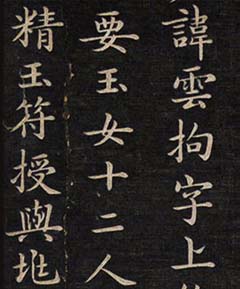 諱雲拘字上
要玉女十二人
精玉符授與